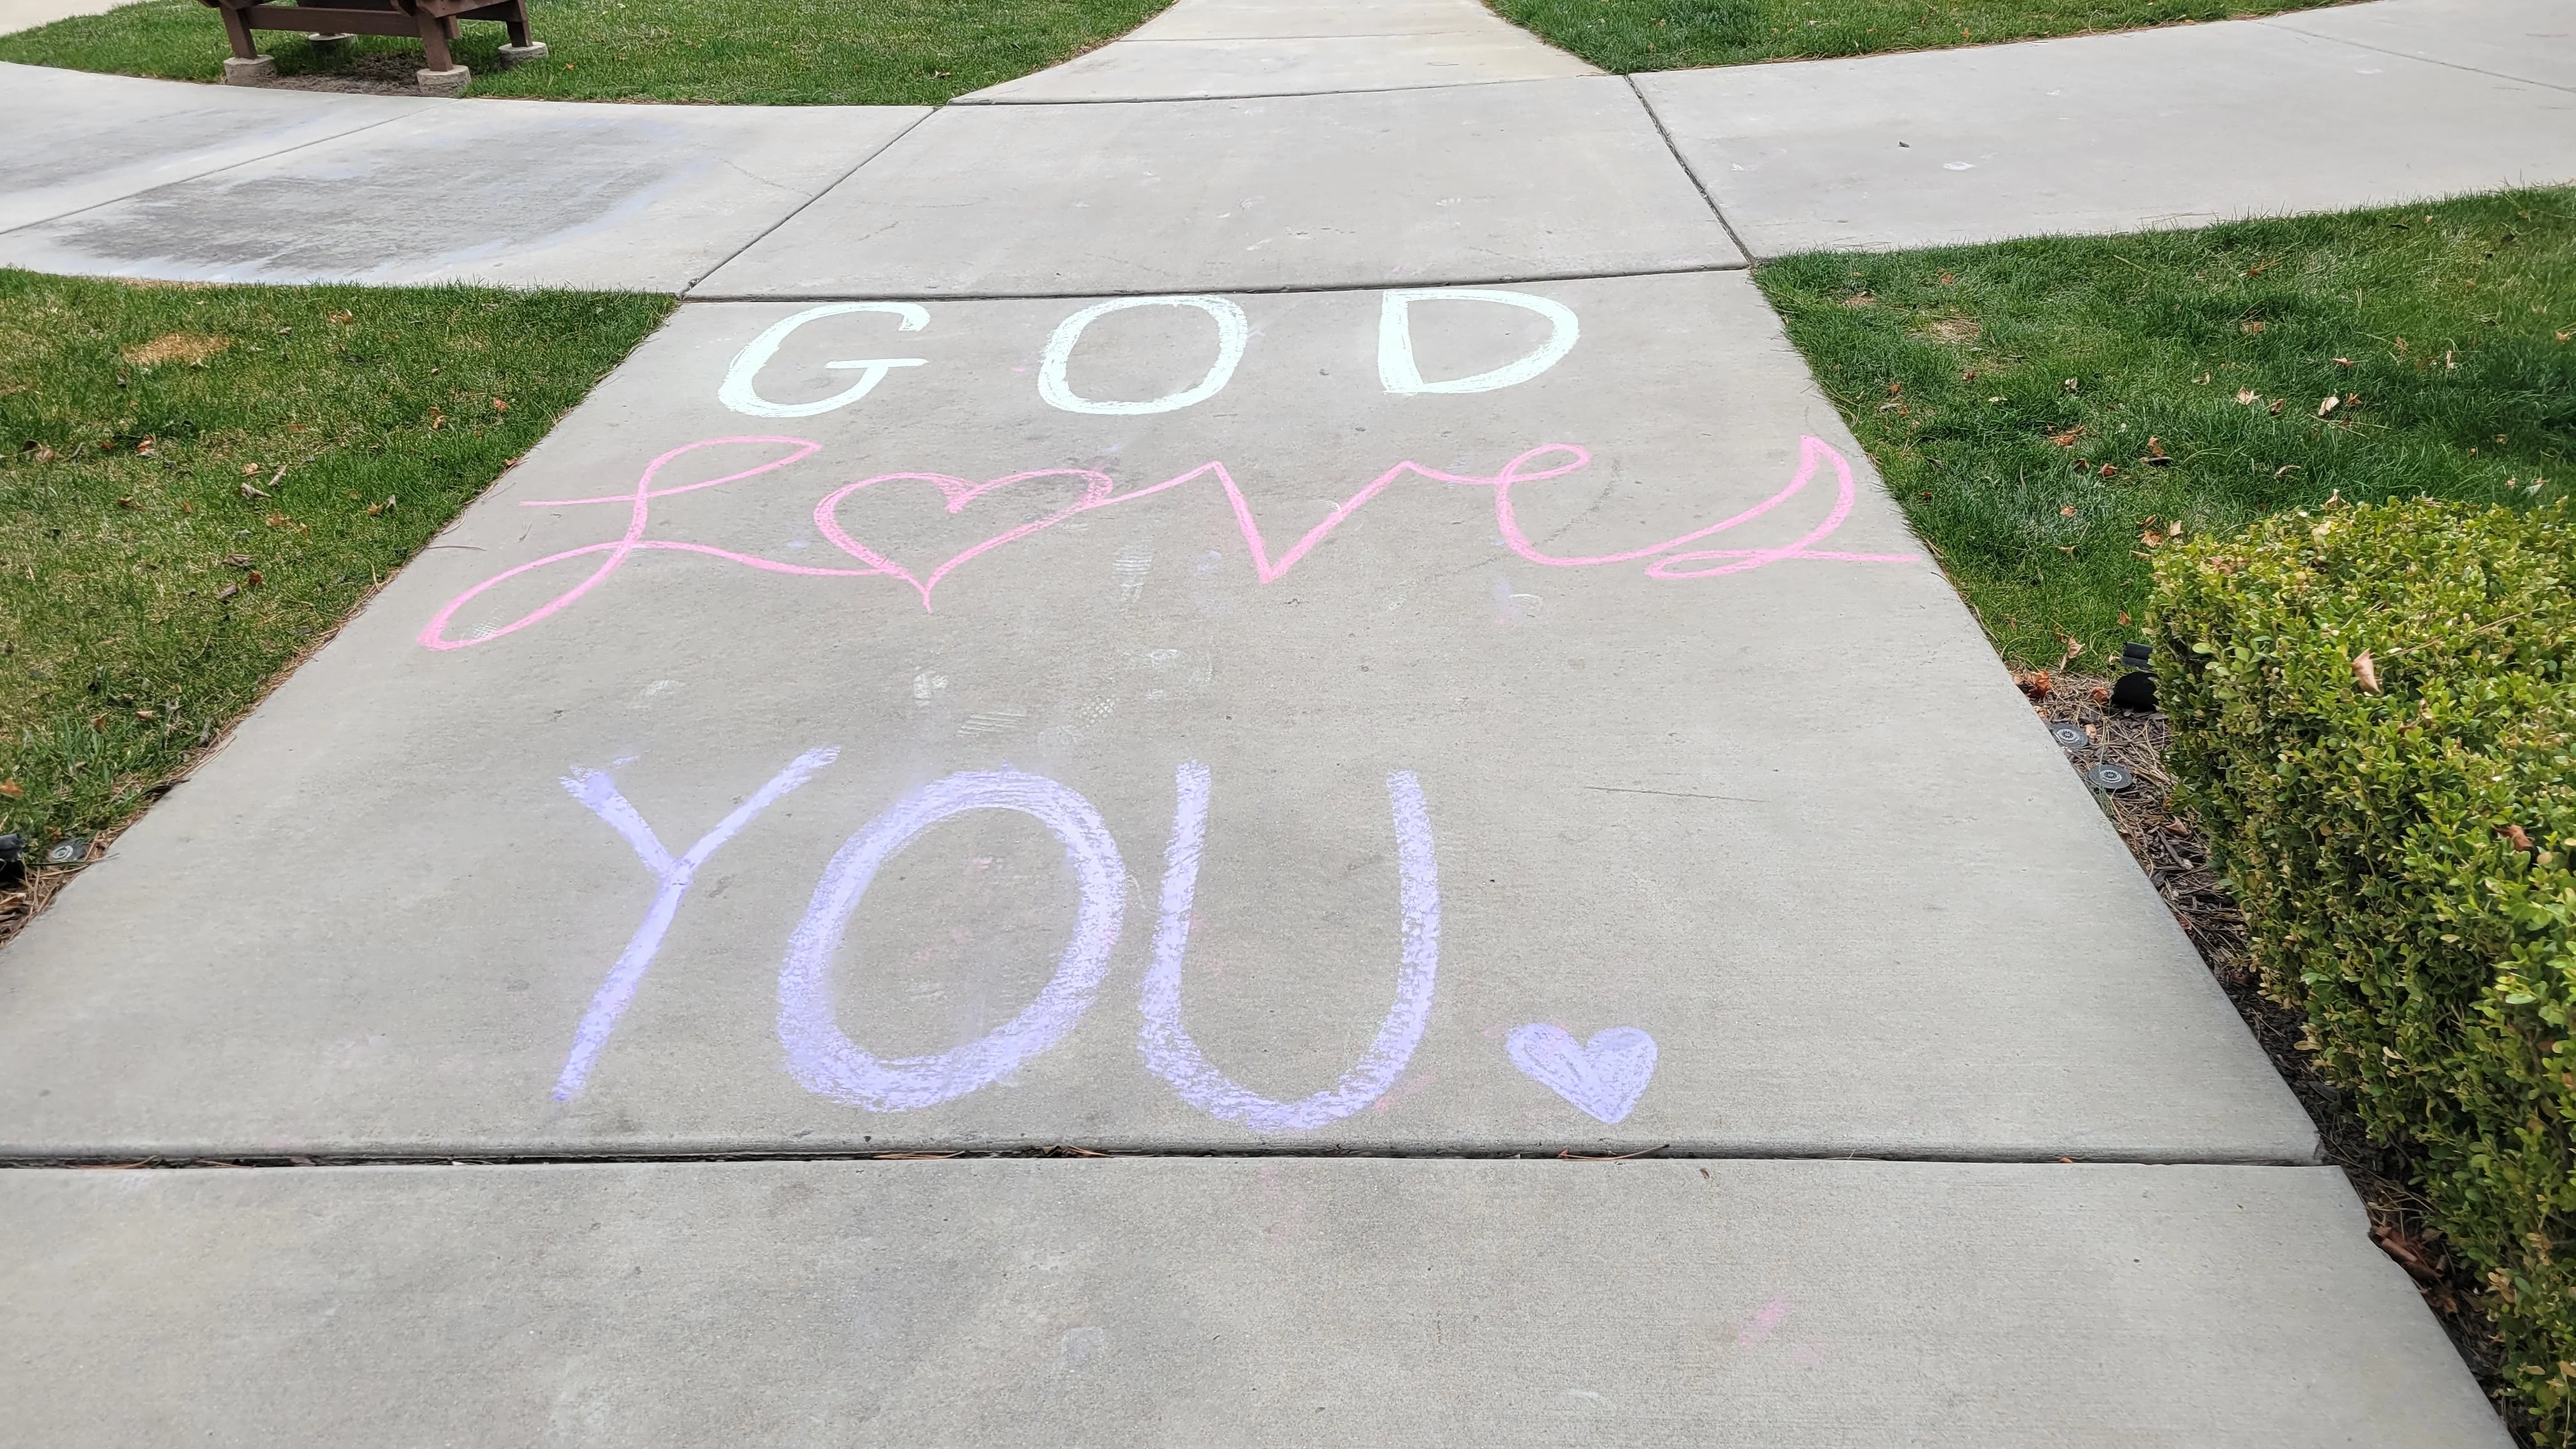 GOD
Loves
YOU.